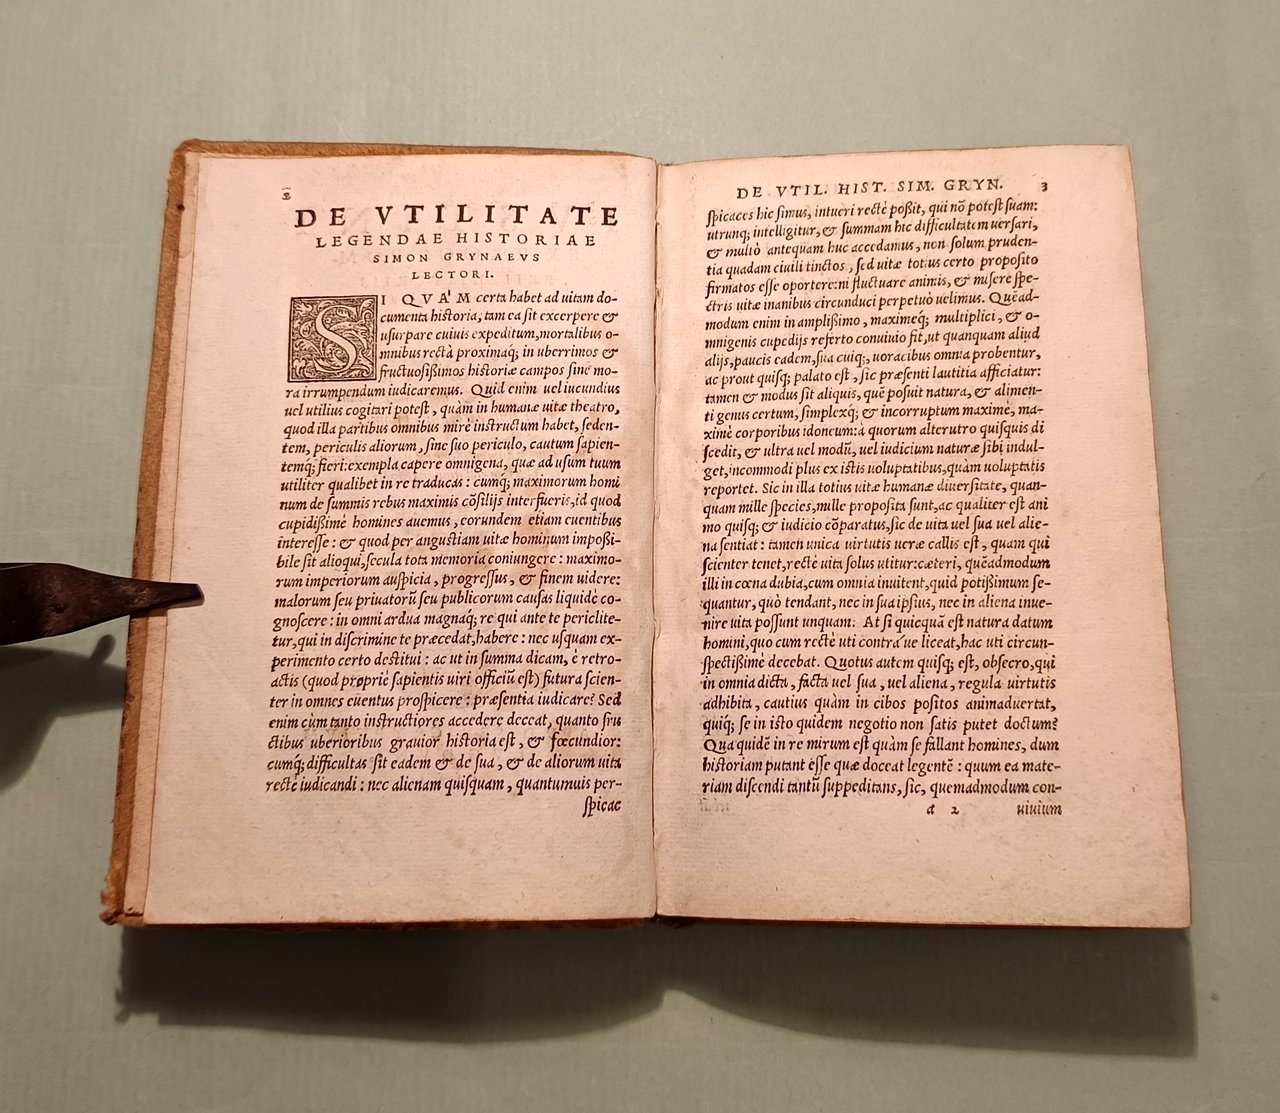 2
DE VTILITATE
LEGENDAE HISTORIAE
SIMON GRYNAEVS
LECTORI.
SI QVAM certa habet ad uitam do-
cumenta historia, tam ea sit excerpere &
usurpare cuiuis expeditum, mortalibus o-
mnibus rectà proximáq; in uberrimos &
fructuosißimos historiæ campos sine mo-
ra irrumpendum iudicaremus. Quid enim uel iucundius
uel utilius cogitari potest, quàm in humanæ uitæ theatro,
quod illa partibus omnibus mirè instructum habet, seden-
tem, periculis aliorum, sine suo periculo, cautum sapien-
temq́; fieri: exempla capere omnigena, quæ ad usum tuum
utiliter qualibet in re traducas: cumq́; maximorum homi
num de summis rebus maximis cõsilijs interfueris, id quod
cupidißimè homines auemus, eorundem etiam euentibus
interesse: & quod per angustiam uitæ hominum impoßi-
bile sit alioqui, secula tota memoria coniungere: maximo-
rum imperiorum auspicia, progressus, & finem uidere:
malorum seu priuatorũ seu publicorum causas liquidè co-
gnoscere: in omni ardua magnáq; re qui ante te periclite-
tur, qui in discrimine te præcedat, habere: nec usquam ex-
perimento certo destitui: ac ut in summa dicam, è retro-
actis (quod propriè sapientis uiri officiũ est) futura scien-
ter in omnes euentus prospicere: præsentia iudicare? Sed
enim cùm tanto instructiores accedere deceat, quanto fru
ctibus uberioribus grauior historia est, & fœcundior:
cumq́; difficultas sit eadem & de sua, & de aliorum uita
rectè iudicandi: nec alienam quisquam, quantumuis per-
spicac
DE VTIL. HIST. SIM. GRYN. 3
spicaces hic simus, intueri rectè poßit, qui nõ potest suam:
utrunq; intelligitur, & summam hic difficultatem uersari,
& multò antequam huc accedamus, non solum pruden-
tia quadam ciuili tinctos, sed uitæ totius certo proposito
firmatos esse oportere: ni fluctuare animis, & misere spe-
ctris uitæ inanibus circunduci perpetuò uelimus. Quẽad-
modum enim in amplißimo, maximeq́; multiplici, & o-
mnigenis cupedijs referto conuiuio fit, ut quanquam aliud
alijs, paucis eadem, sua cuiq;, uoracibus omnia probentur,
ac prout quisq; palato est, sic præsenti lautitia afficiatur:
tamen & modus sit aliquis, quẽ posuit natura, & alimen-
ti genus certum, simplexq́; & incorruptum maxime, ma-
ximè corporibus idoneum: à quorum alterutro quisquis di
scedit, & ultra uel modũ, uel iudicium naturæ sibi indul-
get, incommodi plus ex istis uoluptatibus, quàm uoluptatis
reportet. Sic in illa totius uitæ humanæ diuersitate, quan-
quam mille species, mille proposita sunt, ac qualiter est ani
mo quisq; & iudicio cõparatus, sic de uita uel sua uel alie-
na sentiat: tamen unica uirtutis ueræ callis est, quam qui
scienter tenet, rectè uita solus utitur: cæteri, quẽadmodum
illi in cœna dubia, cum omnia inuitent, quid potißimum se-
quantur, quò tendant, nec in sua ipsius, nec in aliena inue-
nire uita possunt unquam. At si quicquã est natura datum
homini, quo cum rectè uti contráue liceat, hac uti circun-
spectißimè decebat. Quotus autem quisq; est, obsecro, qui
in omnia dicta, facta uel sua, uel aliena, regula uirtutis
adhibita, cautius quàm in cibos positos animaduertat,
quiq́; se in isto quidem negotio non satis putet doctum?
Qua quidẽ in re mirum est quàm se fallant homines, dum
historiam putant esse quæ doceat legentẽ: quum ea mate-
riam discendi tantũ suppeditans, sic, quemadmodum con-
a 2 uiuium